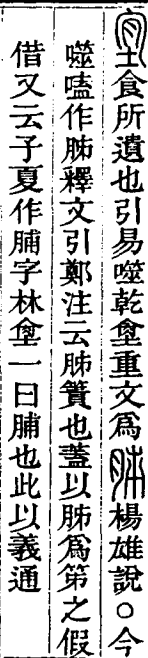 食所遺也引易噬乾重文爲胏楊雄說○今
噬嗑作胏釋文引鄭注云胏簀也蓋以胏爲笫之假
借又云子夏作脯字林一曰脯也此以義通